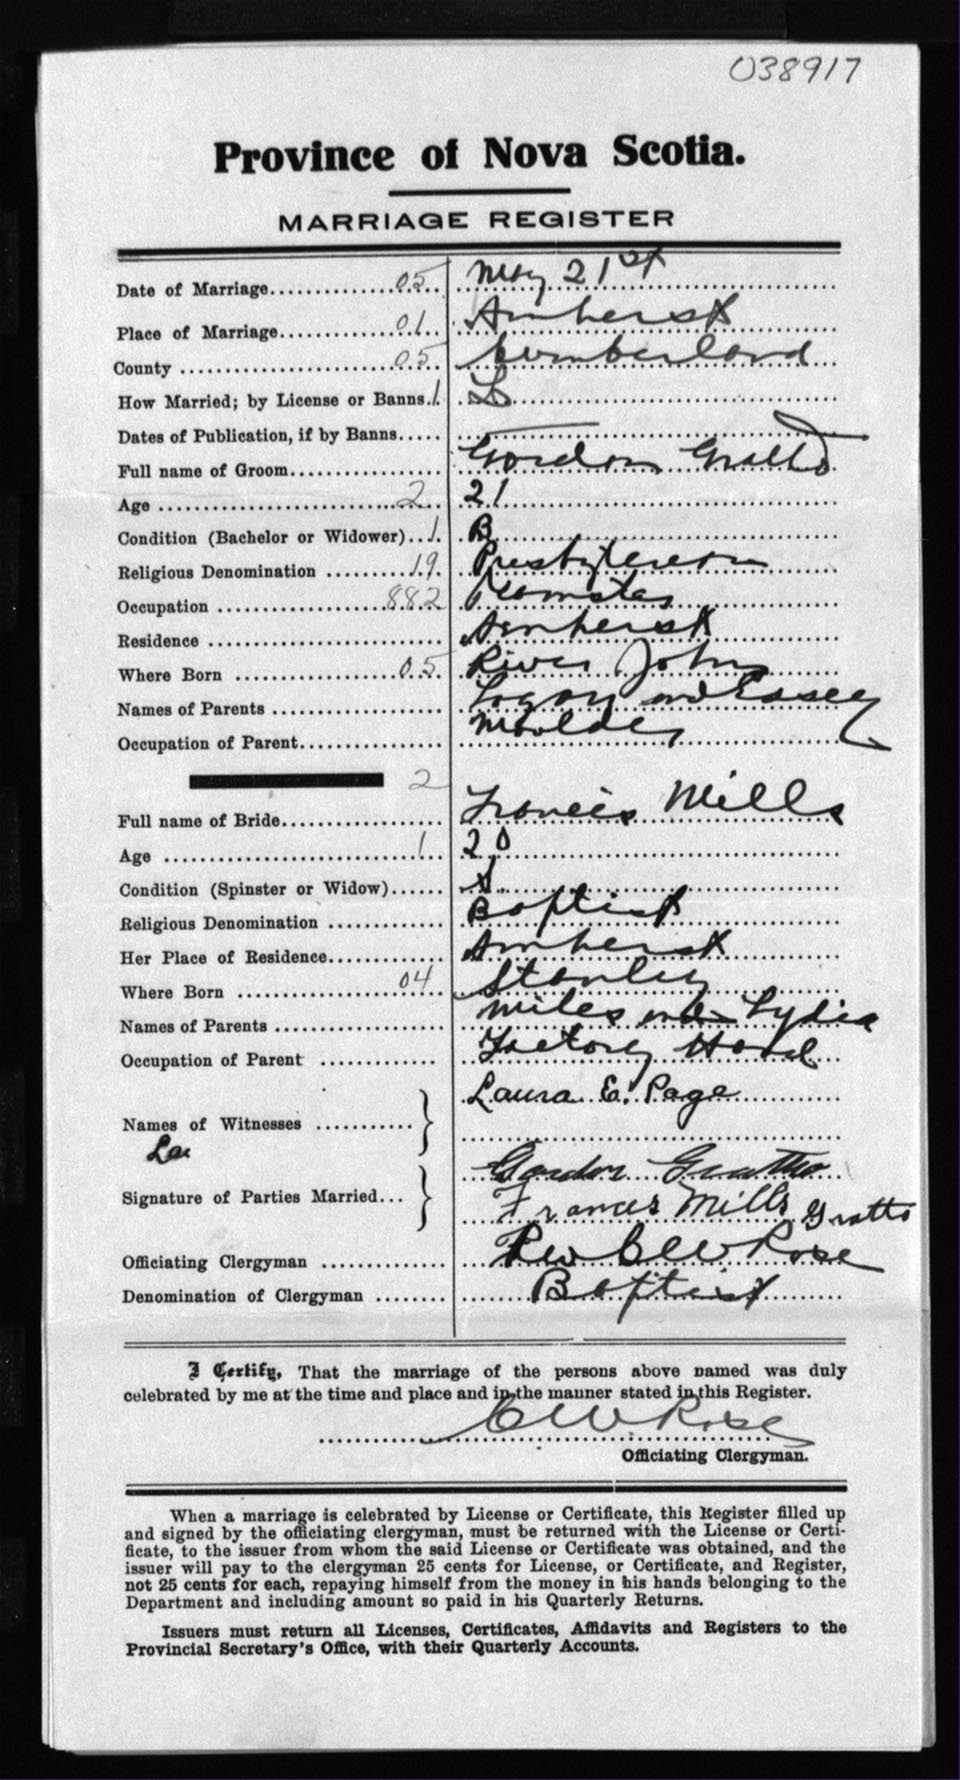 038917
Province of Nova Scotia.
MARRIAGE REGISTER
Date of Marriage 05 May 21st
Place of Marriage 01 Amherst
County 05 Cumberland
How Married; by License or Banns. 1 L
Dates of Publication, if by Banns
Full name of Groom Gordon Gratto
Age 2 21
Condition (Bachelor or Widower) 1 B
Religious Denomination 19 Presbyterean
Occupation 882 Teamster
Residence Amherst
Where Born 05 River John
Names of Parents Logan and Casey
Occupation of Parent Moulder
2
Full name of Bride Francis Mills
Age 1 20
Condition (Spinster or Widow) S.
Religious Denomination Baptist
Her Place of Residence Amherst
Where Born 04 Stanley
Names of Parents Miles and Lydia
Occupation of Parent Factory Hand
Laura E. Page
Names of Witnesses }
La
Gordon Gratto
Signature of Parties Married }
Frances Mills Gratto
Officiating Clergyman Rev C W Rose
Denomination of Clergyman Baptist
I Certify, That the marriage of the persons above named was duly
celebrated by me at the time and place and in the manner stated in this Register.
C W Rose
Officiating Clergyman.
When a marriage is celebrated by License or Certificate, this Register filled up
and signed by the officiating clergyman, must be returned with the License or Certi-
ficate, to the issuer from whom the said License or Certificate was obtained, and the
issuer will pay to the clergyman 25 cents for License, or Certificate, and Register,
not 25 cents for each, repaying himself from the money in his hands belonging to the
Department and including amount so paid in his Quarterly Returns.
Issuers must return all Licenses, Certificates, Affidavits and Registers to the
Provincial Secretary's Office, with their Quarterly Accounts.